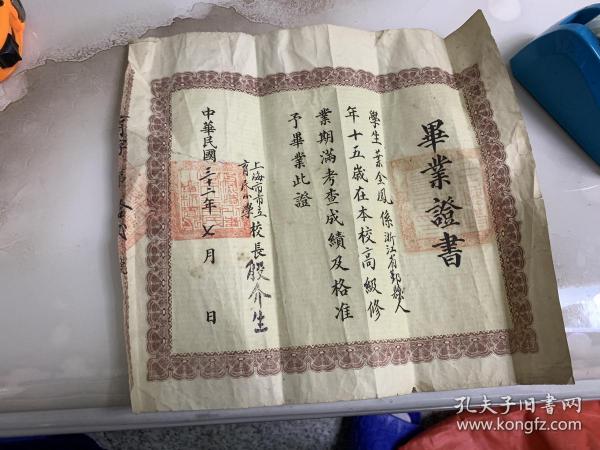 畢業證書
學生葉金鳳係浙江省鄞縣人
年十五歲在本校高級修
業期滿考查成績及格准
予畢業此證
上海市市立
育民小學
校長殷介生
中華民國三十二年七月 日
孔夫子旧书网
www.kongfz.com